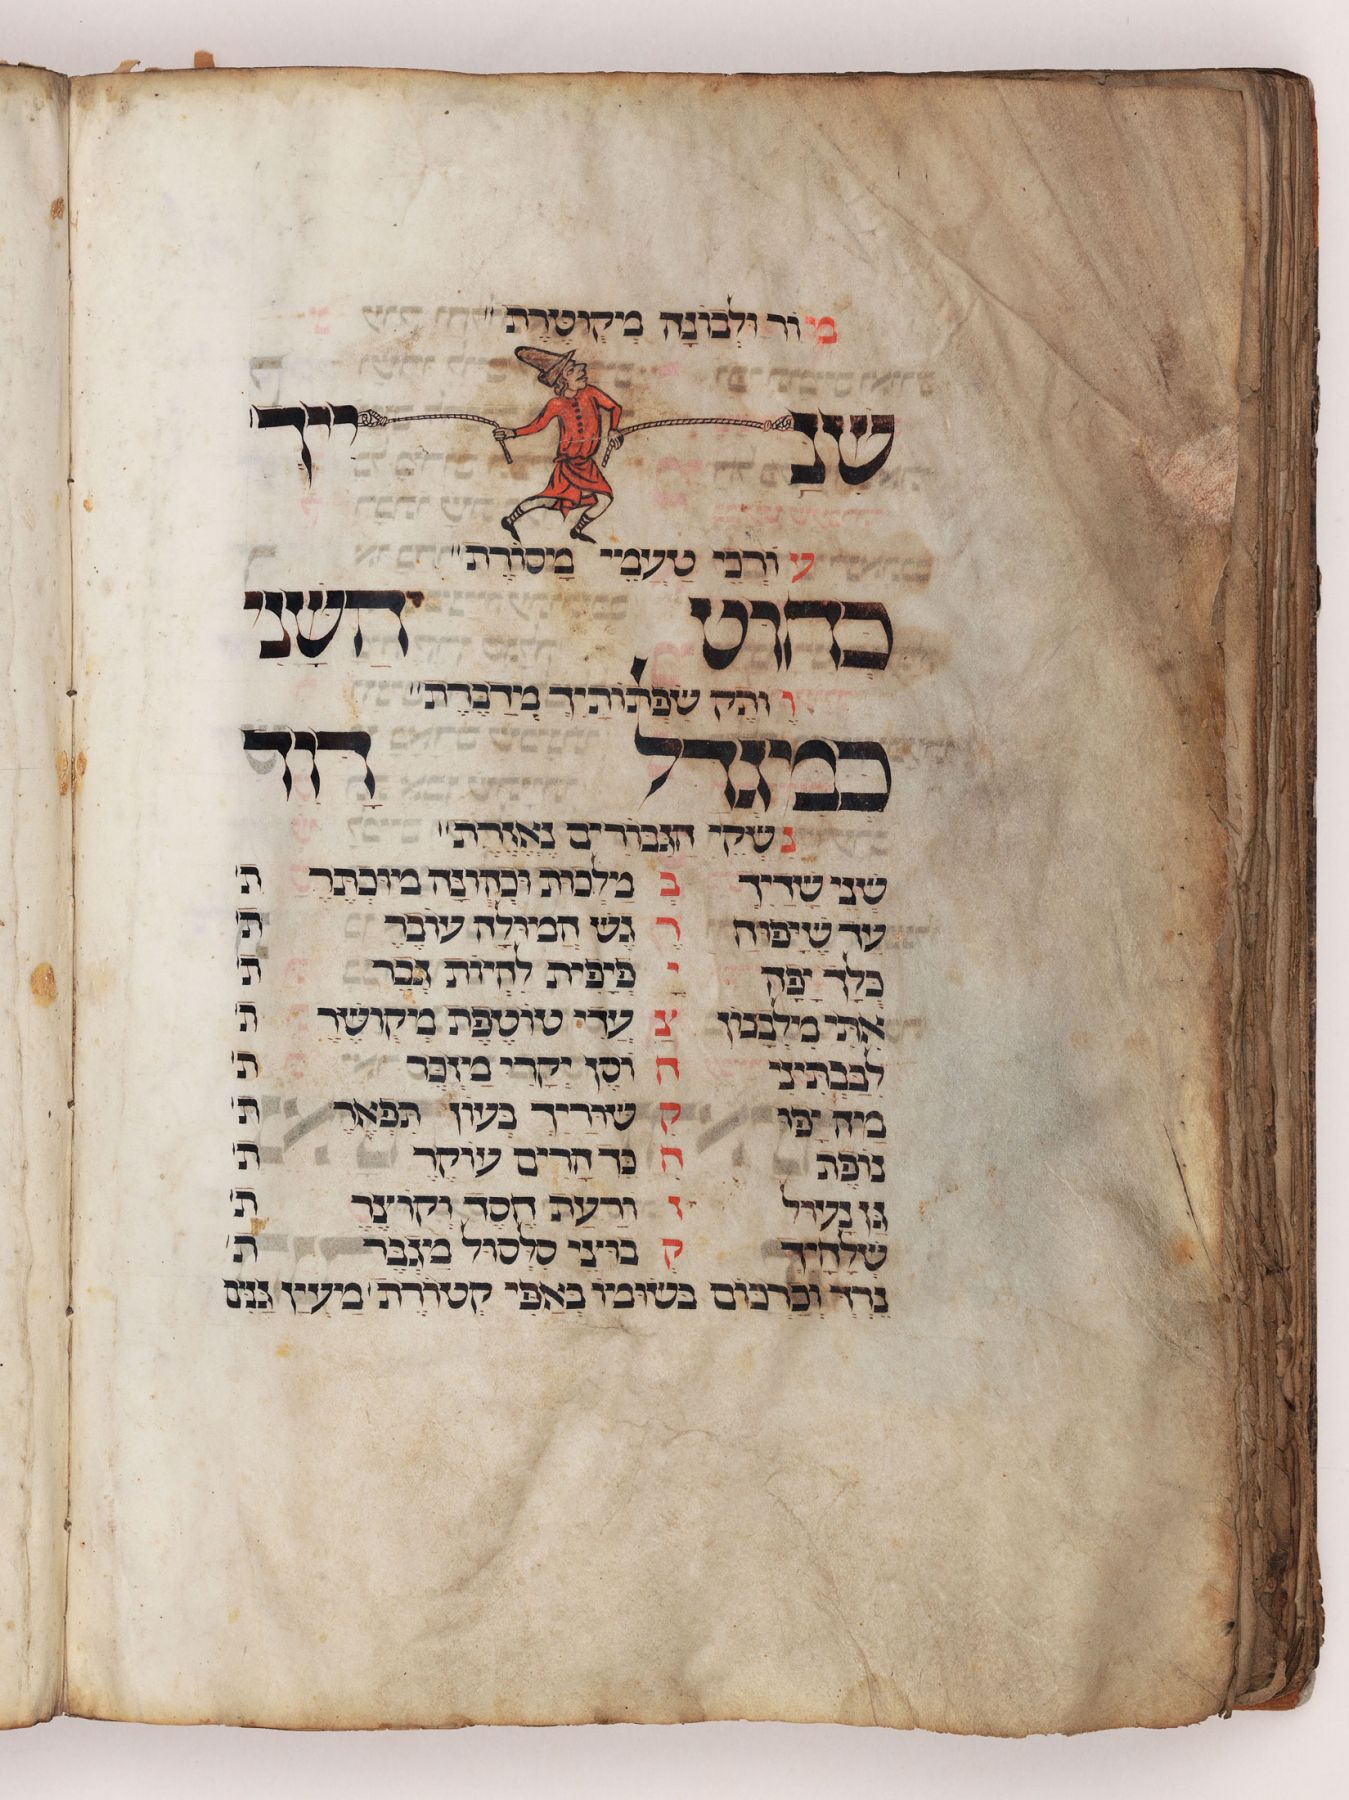 מור ולבונה מקוטרת
שניך
עורכי טעמי מסורת
כחוט השני
ותק שפתותיך מדברת
כמגדל דויד
נשקי הגבורים נאזרת
שני שדיך ב מלכות וכהונה מוכתרת
עד שיפוח רגש המולה עוברת
כלך יפה יפיפית להיות גברת
אתי מלבנון צעדי טוטפת מקושרת
לבבתיני חוסן יקרי מזכרת
מה יפו קשוריך בעון תפארת
נופת הרים עוקרת
גן נעול וקוצרת
שלחיך סלסול מגברת
נרד וכרכום בשומו באפי קטורת מעין גנים